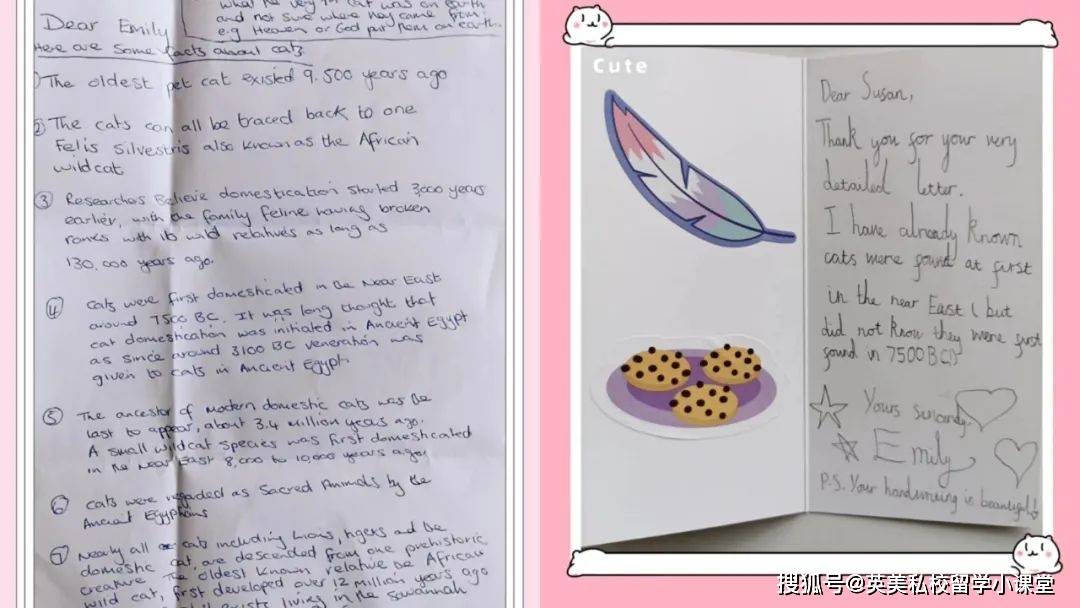 what the very 1st cat was on earth
and not sure where they came from
e.g Heaven or God put them on earth.
Dear Emily
Here are some facts about cats.
① The oldest pet cat existed 9.500 years ago
② The cats can all be traced back to one
Felis Silvestris also known as the African
wildcat
③ Researchers Believe domestication started 3,000 years
earlier, with the family feline having broken
ranks with its wild relatives as long as
130,000 years ago.
④ cats were first domesticated in the Near East
around 7500 BC. It was long thought that
cat domestication was initiated in Ancient Egypt
as since around 3100 BC veneration was
given to cats in Ancient Egypt
⑤ The ancestor of modern domestic cats was the
last to appear, about 3.4 million years ago.
A small wildcat species was first domesticated
in the Near East 8,000 to 10,000 years ago.
⑥ cats were regarded as Sacred Animals by the
Ancient Egyptians
⑦ Nearly all cats including lions, tigers and the
domestic cat, are descended from one prehistoric
creature. The oldest known relative the African
wild cat, first developed over 12 million years ago
exists living in the savannah
Cute
Dear Susan,
Thank you for your very
detailed letter.
I have already known
cats were found at first
in the near East (but
did not know they were first
found in 7500 BC)
Yours sincerely,
Emily
P.S. Your handwriting is beautiful!
搜狐号@英美私校留学小课堂